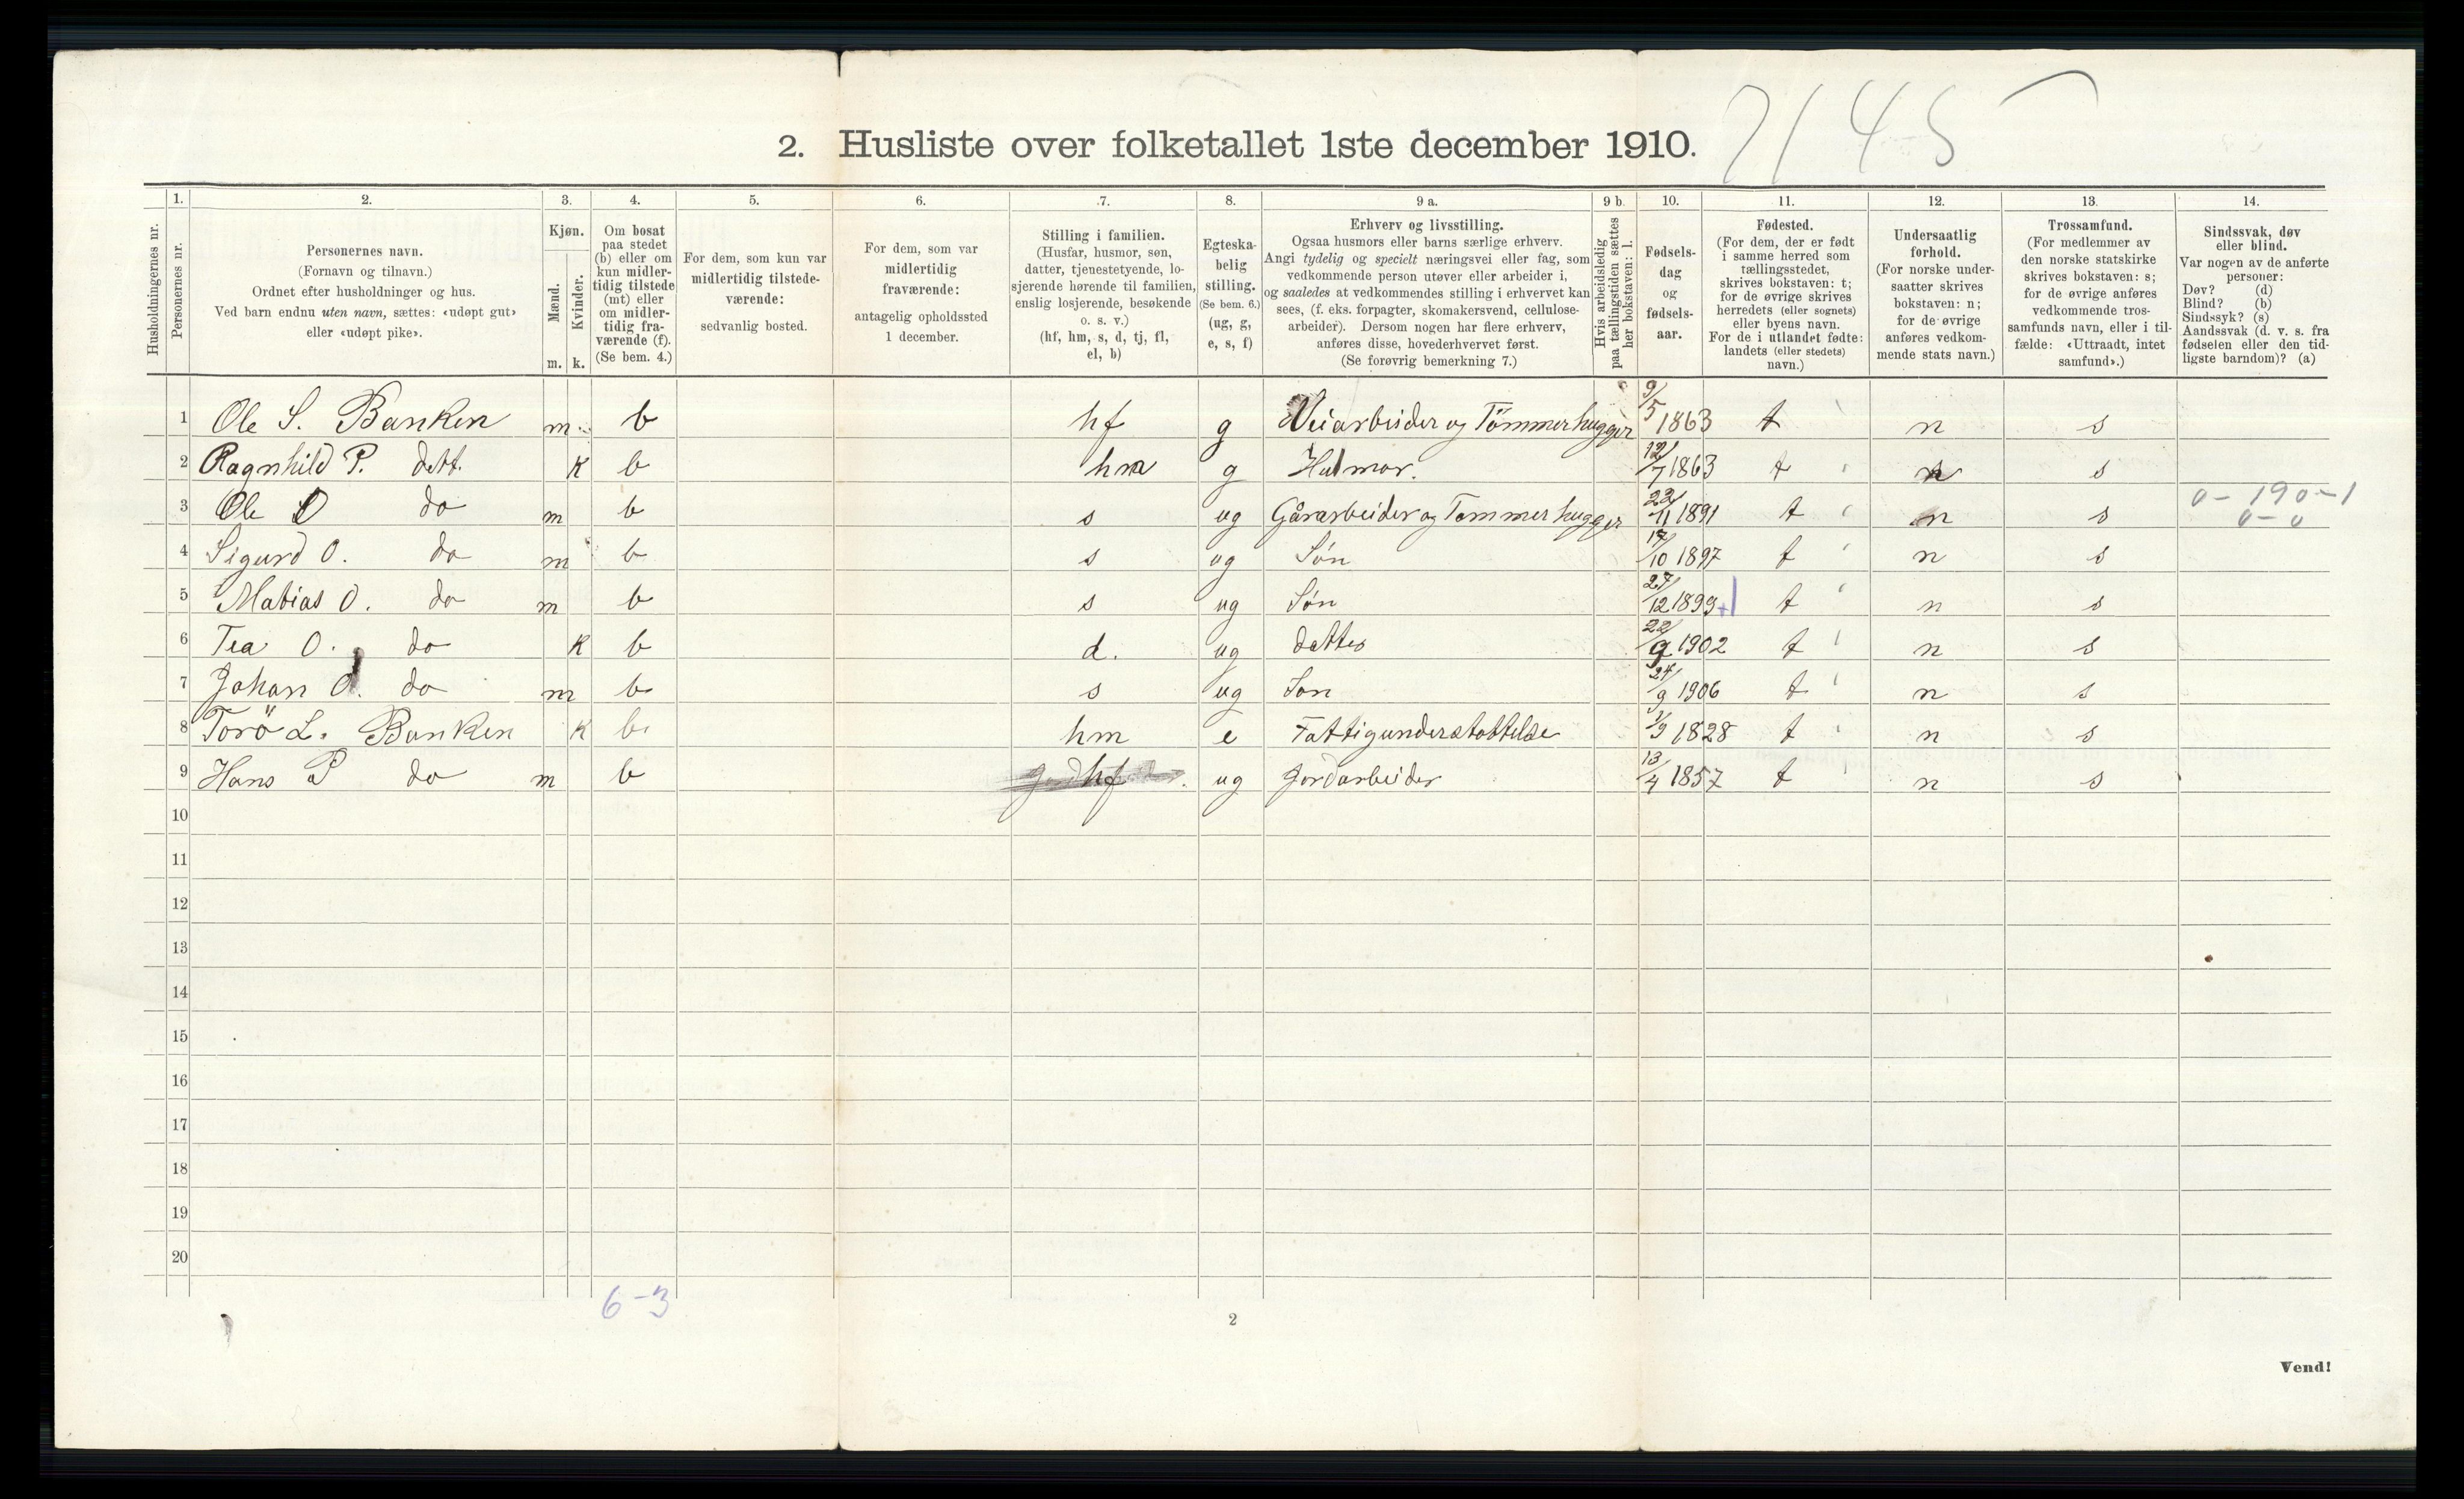 7145
2. Husliste over folketallet 1ste december 1910.
1. 2. 3. 4. 5. 6. 7. 8. 9 a. 9 b. 10. 11. 12. 13. 14.
Husholdningernes nr.
Personernes nr.
Personernes navn.
(Fornavn og tilnavn.)
Ordnet efter husholdninger og hus.
Ved barn endnu uten navn, sættes: «udøpt gut»
eller «udøpt pike».
Kjøn.
Mænd.
Kvinder.
m. k.
Om bosat
paa stedet
(b) eller om
kun midler-
tidig tilstede
(mt) eller
om midler-
tidig fra-
værende (f).
(Se bem. 4.)
For dem, som kun var
midlertidig tilstede-
værende:
sedvanlig bosted.
For dem, som var
midlertidig
fraværende:
antagelig opholdssted
1 december.
Stilling i familien.
(Husfar, husmor, søn,
datter, tjenestetyende, lo-
sjerende hørende til familien,
enslig losjerende, besøkende
o. s. v.)
(hf, hm, s, d, tj, fl,
el, b)
Egteska-
belig
stilling.
(Se bem. 6.)
(ug, g,
e, s, f)
Erhverv og livsstilling.
Ogsaa husmors eller barns særlige erhverv.
Angi tydelig og specielt næringsvei eller fag, som
vedkommende person utøver eller arbeider i,
og saaledes at vedkommendes stilling i erhvervet kan
sees, (f. eks. forpagter, skomakersvend, cellulose-
arbeider). Dersom nogen har flere erhverv,
anføres disse, hovederhvervet først.
(Se forøvrig bemerkning 7.)
Hvis arbeidsledig
paa tællingstiden sættes
her bokstaven: l.
Fødsels-
dag
og
fødsels-
aar.
Fødested.
(For dem, der er født
i samme herred som
tællingsstedet,
skrives bokstaven: t;
for de øvrige skrives
herredets (eller sognets)
eller byens navn.
For de i utlandet fødte:
landets (eller stedets)
navn.)
Undersaatlig
forhold.
(For norske under-
saatter skrives
bokstaven: n;
for de øvrige
anføres vedkom-
mende stats navn.)
Trossamfund.
(For medlemmer av
den norske statskirke
skrives bokstaven: s;
for de øvrige anføres
vedkommende tros-
samfunds navn, eller i til-
fælde: «Uttraadt, intet
samfund».)
Sindssvak, døv
eller blind.
Var nogen av de anførte
personer:
Døv? (d)
Blind? (b)
Sindssyk? (s)
Aandssvak (d. v. s. fra
fødselen eller den tid-
ligste barndom)? (a)
1 Ole S. Banken m. b hf g Veiarbeider og Tömmerhugger 9/5 1863 t n s
2 Ragnhild P. dett. K b hm g Husmor. 12/7 1863 t n s
3 Ole O do m b s ug Gårarbeider og Tømmerhugger 22/11 1891 t n s 0 – 190 – 1
0 – 0
4 Sigurd O. do m b s ug Søn 17/10 1897 t n s
5 Matias O. do m b s ug Søn 27/12 1899 +1 t n s
6 Tea O. do K b d. ug datter 22/9 1902 t n s
7 Johan O. do m b s ug Søn 24/9 1906 t n s
8 Torö L. Banken K b. hm e Fattigunderstøttelse 1/9 1828 t n s
9 Hans P do m b hf ug Jordarbeider 13/4 1857 t n s
10
11
12
13
14
15
16
17
18
19
20
6 – 3
2
Vend!